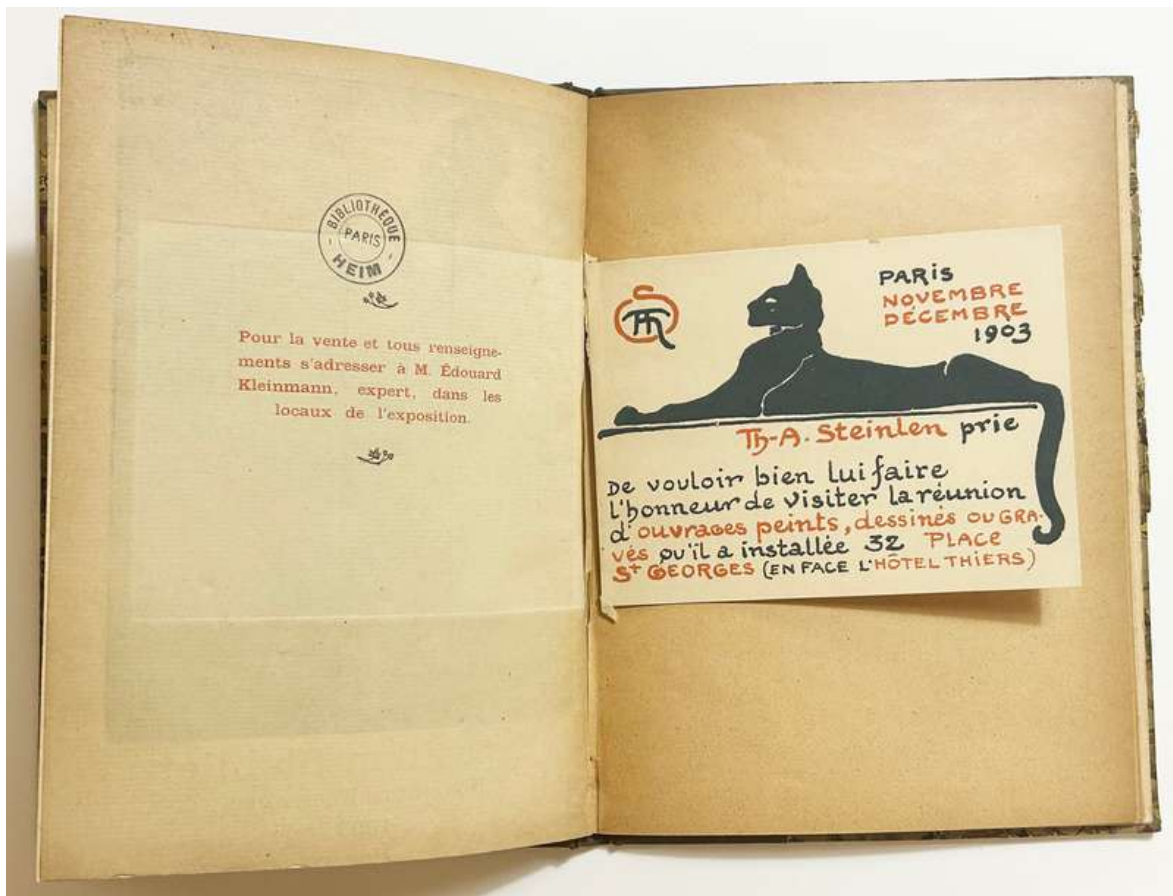 BIBLIOTHÈQUE
PARIS
HEIM
Pour la vente et tous renseigne-
ments s'adresser à M. Édouard
Kleinmann, expert, dans les
locaux de l'exposition.
PARIS
NOVEMBRE
DÉCEMBRE
1903
Th-A. Steinlen prie
De vouloir bien lui faire
l'honneur de visiter la réunion
d'ouvrages peints, dessinés ou GRA-
vés qu'il a installée 32 PLACE
St GEORGES (EN FACE L'HÔTEL THIERS)